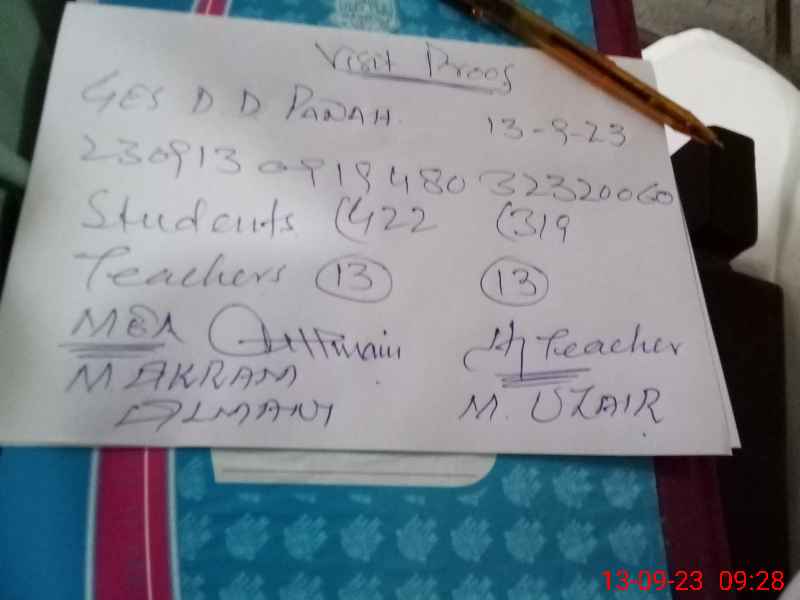 Visit Proof
GES D D PANAH. 13-9-23
230913 0919480 32320060
Students (422 (319
Teachers 13 13
MEA
H Teacher
M AKRAM
ALMANI M. UZAIR
13-09-23 09:28